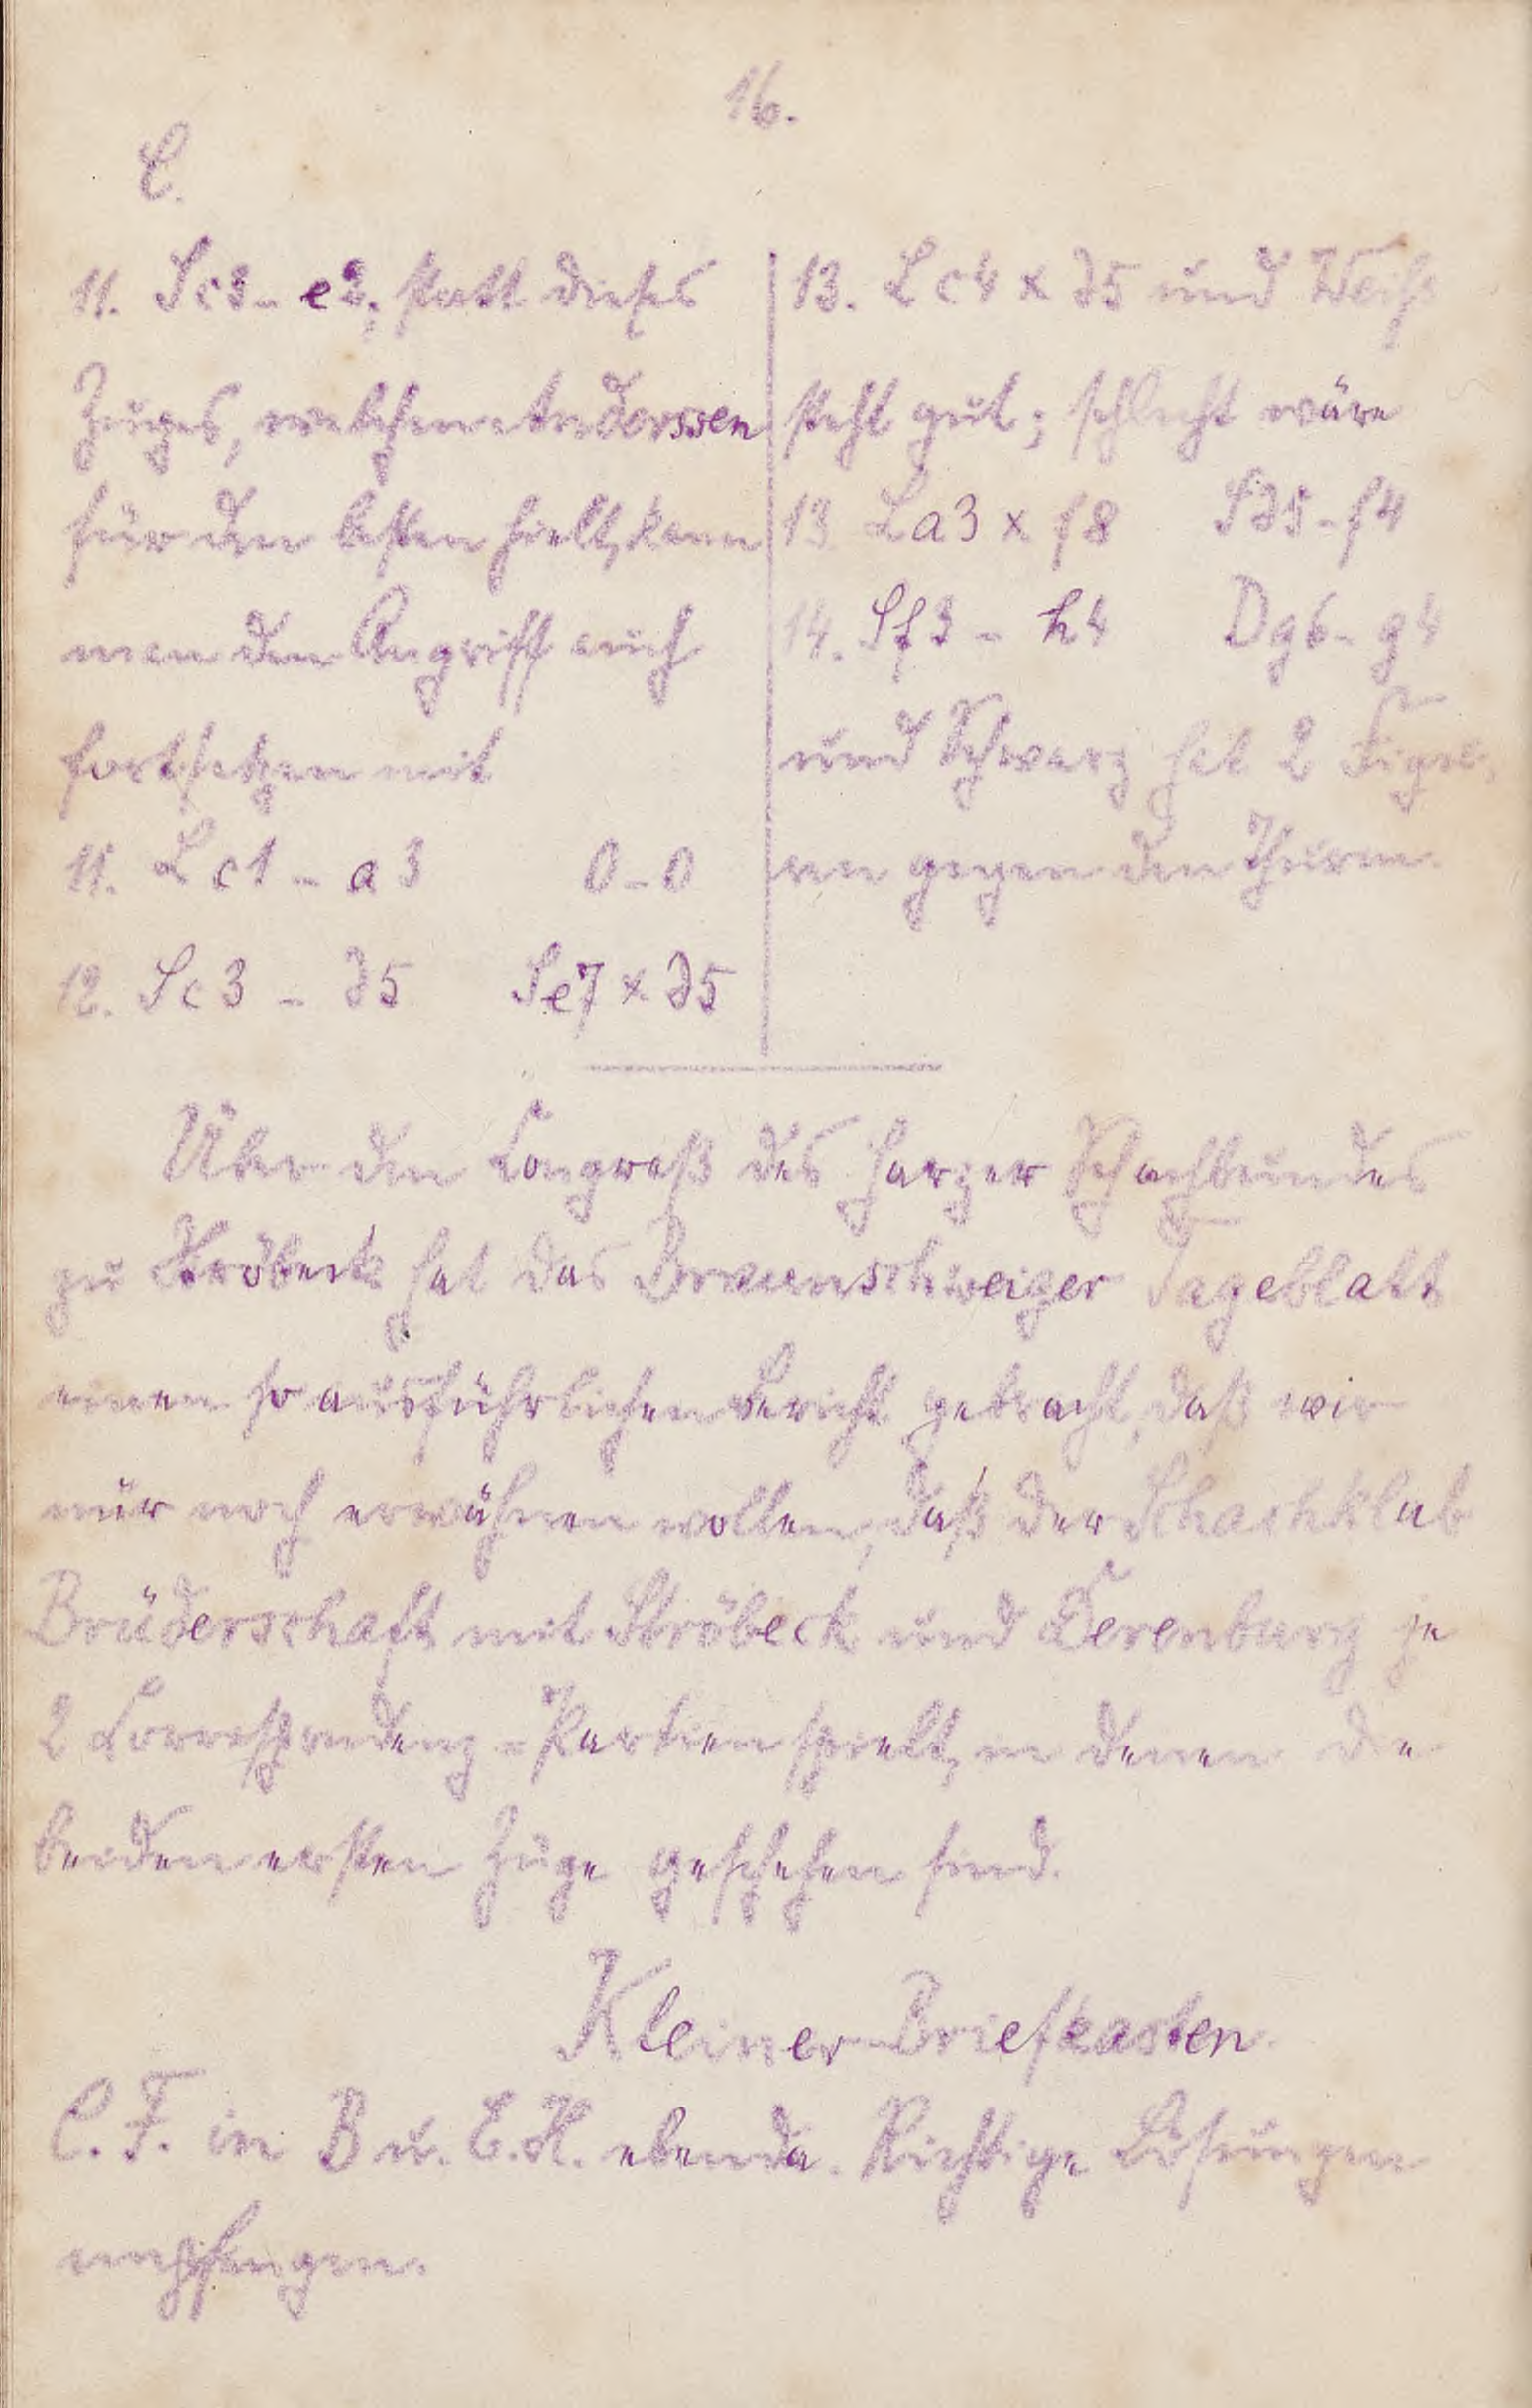 16.
C.
11. Sc3 - e2; statt dieses
Zuges, welchen Anderssen
für den besten hielt, kann
man den Angriff auch
fortsetzen mit
11. Lc1 - a3 0-0
12. Sc3 - d5 Se7 x d5
13. Lc4 x d5 und Weiß
steht gut; schlecht wäre
13. La3 x f8 Sd5 - f4
14. Sf3 - h4 Dg6 - g4
und Schwarz hat 2 Figu-
ren gegen den Thurm.
Über den Congreß des Harzer Schachbundes
zu Ströbeck hat das Braunschweiger Tageblatt
einen so ausführlichen Bericht gebracht, daß wir
nur noch erwähnen wollen, daß der Schachklub
Brüderschaft mit Ströbeck und Derenburg je
2 Correspondenz-Partien spielt, in denen die
beiden ersten Züge geschehen sind.
Kleiner Briefkasten.
C. F. in B u. E. H. ebenda. Richtige Lösungen
empfangen.